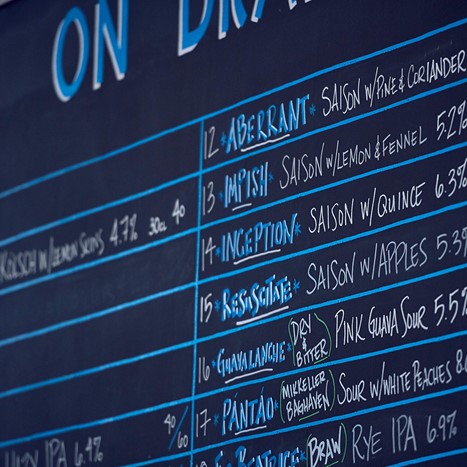 ON DRA
12 *ABERRANT* SAISON W/PINE & CORIANDER
13 *IMPISH* SAISON W/LEMON & FENNEL 5.2%
KÖLSCH W/LEMON 4.7% 30CL 40
14 *INCEPTION* SAISON W/QUINCE 6.3%
15 *RESUSCITATE* SAISON W/APPLES 5.3%
16 *GUAVALANCHE* (DRY & BITTER) PINK GUAVA SOUR 5.5%
40/60 17 *PÁNTÁO* (MIKKELLER BAGHAVEN) SOUR W/WHITE PEACHES 8.
IPA 6.4% BEATRICE (BRAW) RYE IPA 6.9%